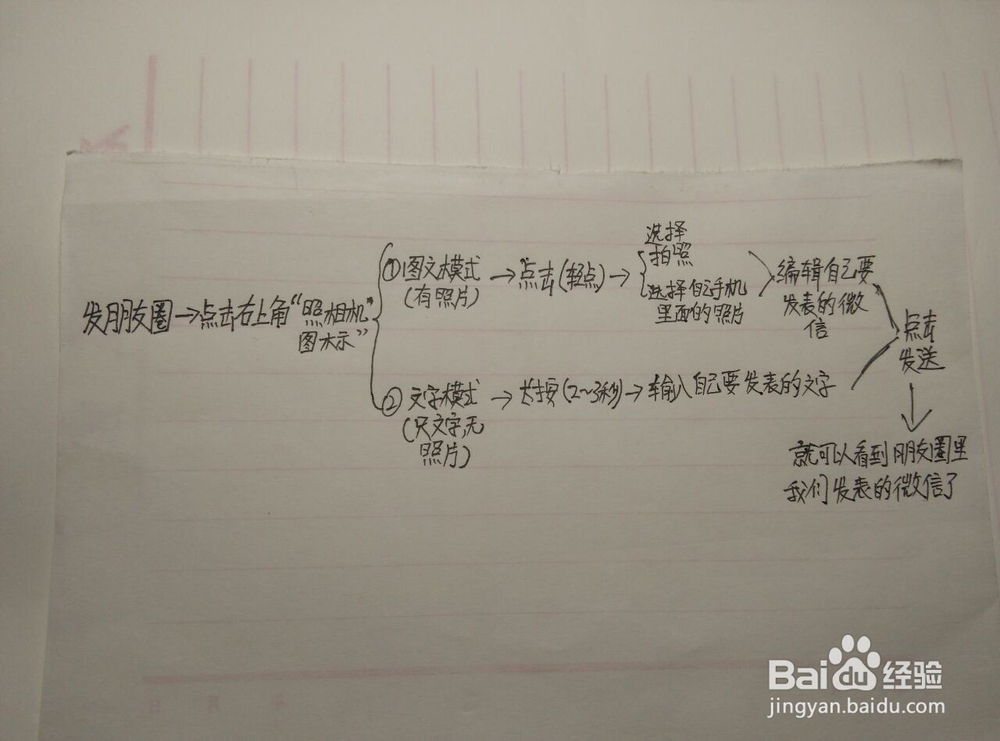 发朋友圈→点击右上角“照相机”
图标示
①图文模式
(有照片)
→点击(轻点)→
选择
拍照
选择自己手机
里面的照片
编辑自己要
发表的微
信
②文字模式
(只文字,无
照片)
→长按(2~3秒)→输入自己要发表的文字
点击
发送
↓
就可以看到朋友圈里
我们发表的微信了
Baidu经验
jingyan.baidu.com